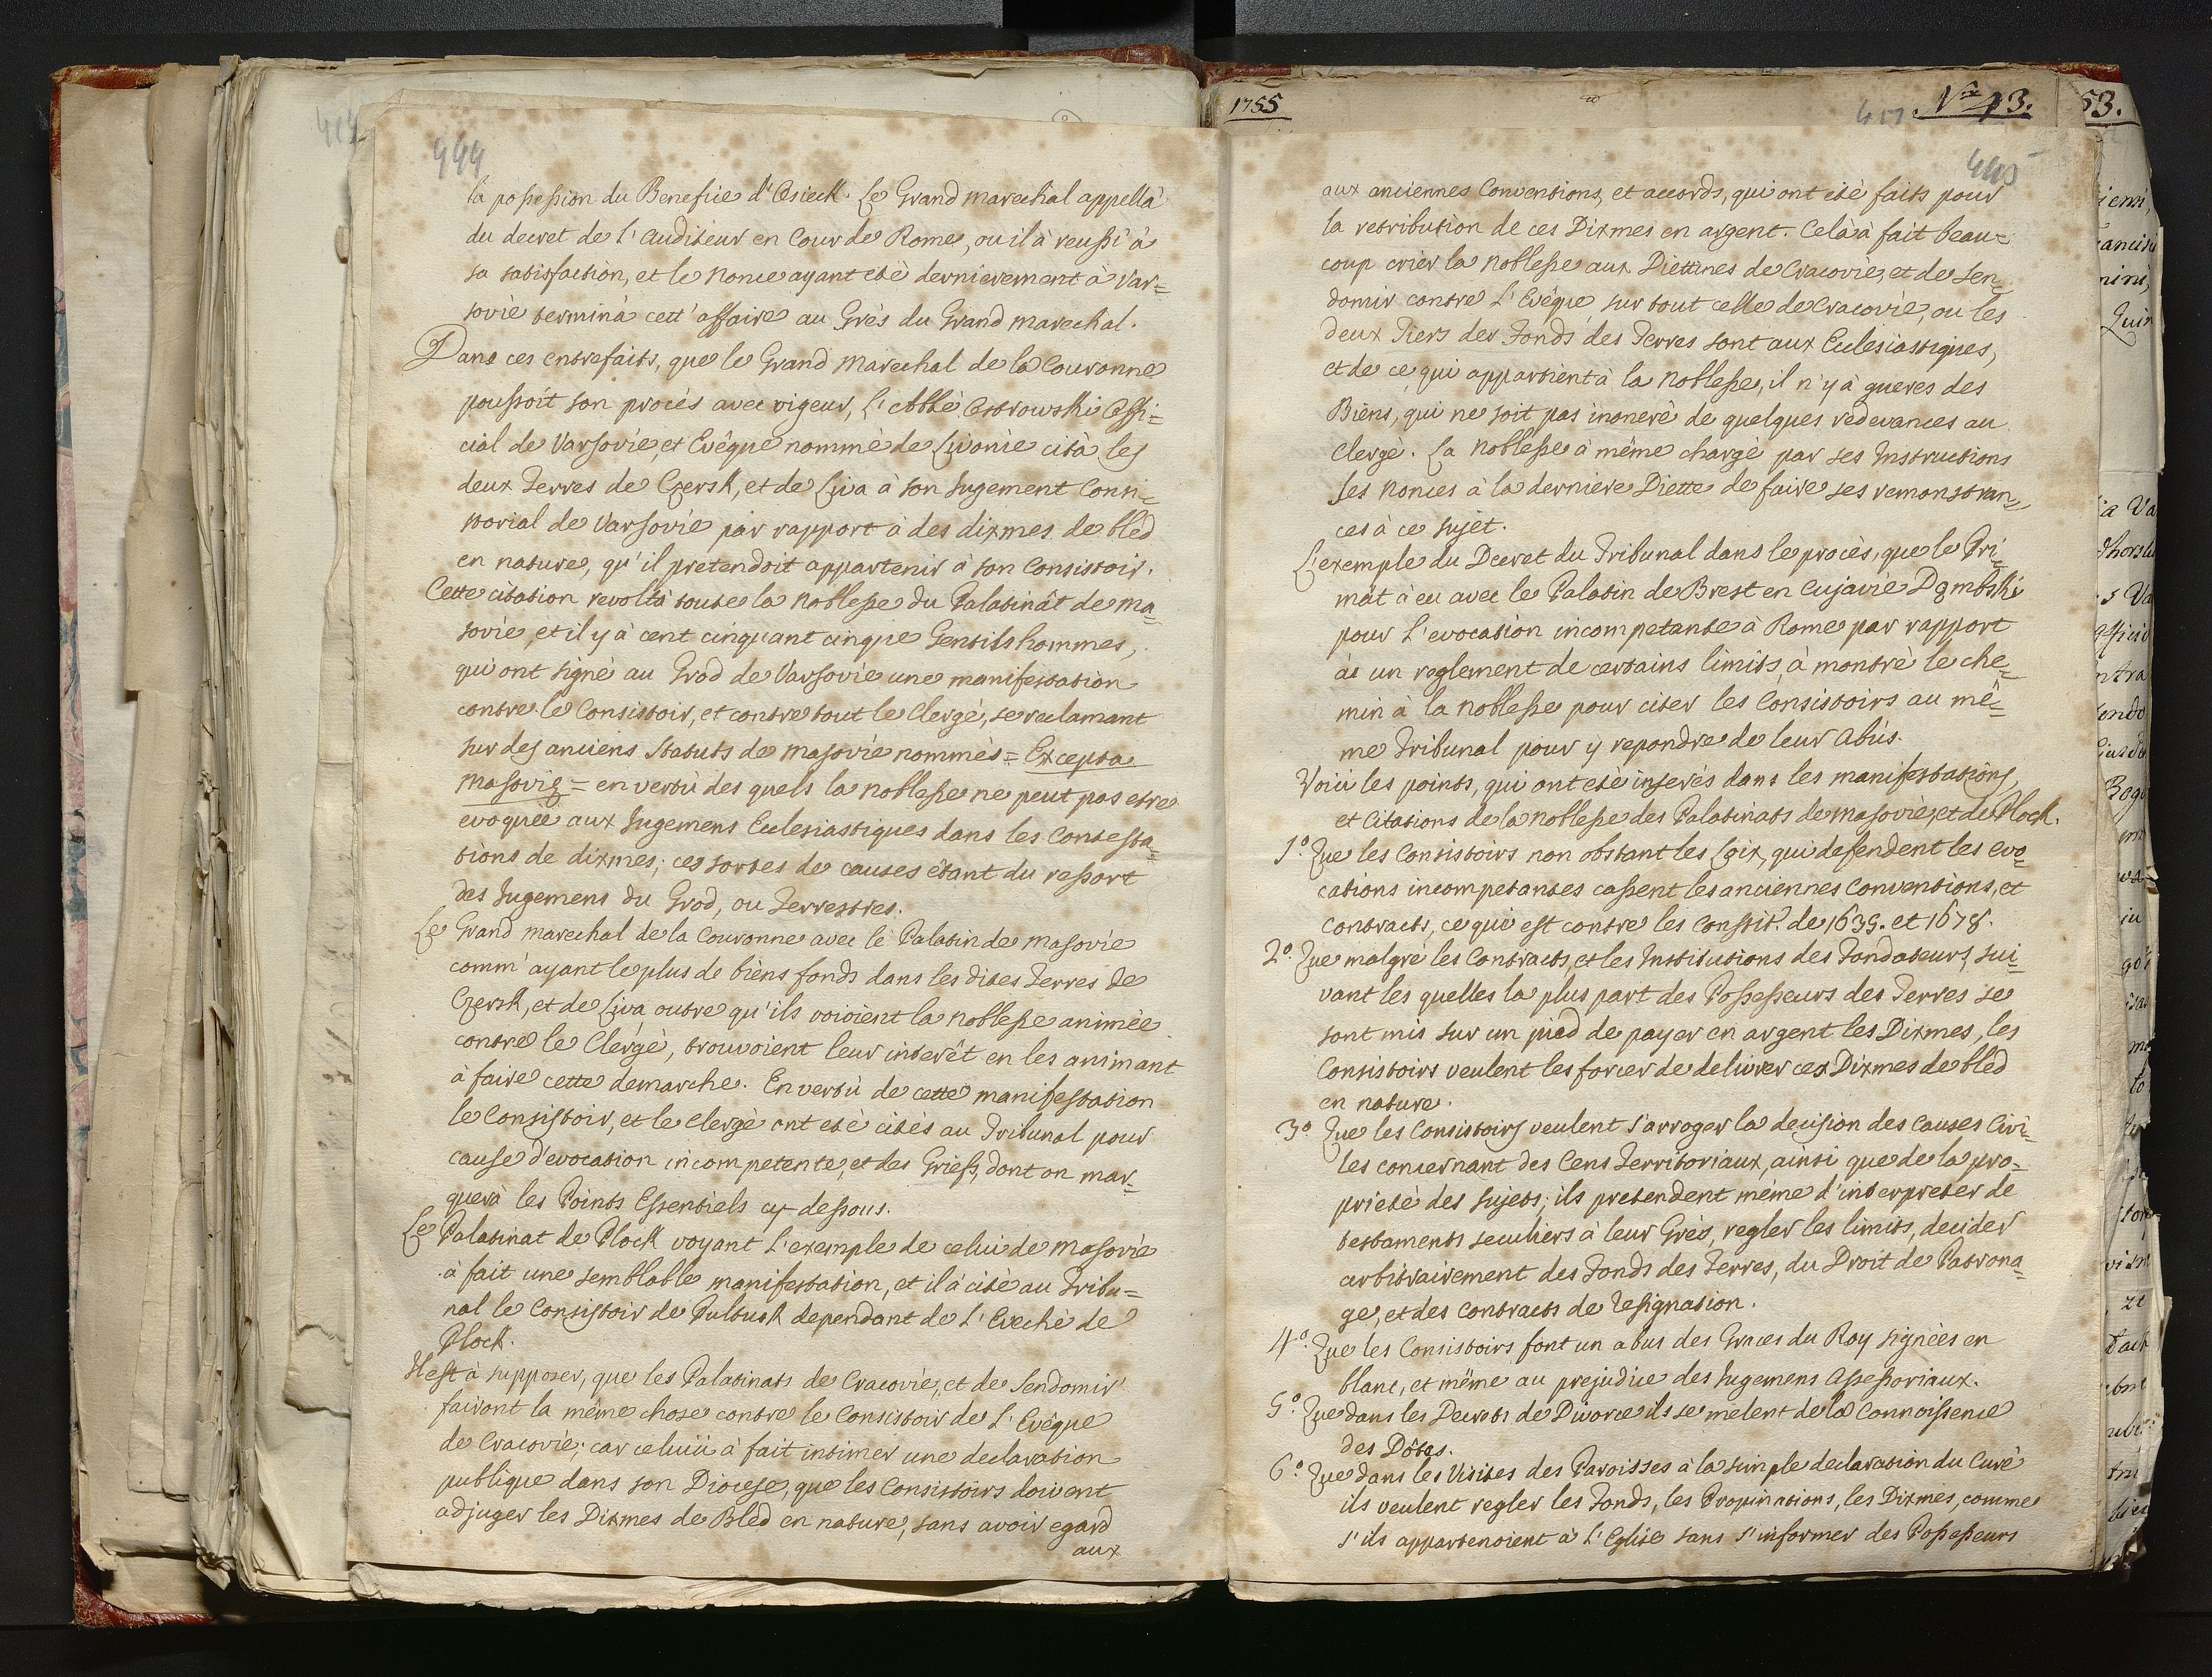 444
la possession du Benefice d'Osieck. Le Grand Marechal appellà
du decret de l'Auditeur en Cour de Rome, ou il à reussi à
sa satisfaction, et le Nonce ayant etè dernierement à Var=
sovie terminà cett' affaire au Grès du Grand Marechal.
Dans ces entrefaits, que le Grand Marechal de la Couronne
poussoit son procès avec vigeur, l'Abbè Ostrowski Offi=
cial de Varsovie, et Evêque nommè de Livonie cità les
deux Terres de Czersk, et de Liva à son Jugement Consi=
storial de Varsovie par rapport à des dixmes de bled
en nature, qu'il pretendoit appartenir à son Consistoir.
Cette citation revoltà toute la Noblesse du Palatinât de Ma=
sovie, et il y à cent cinquant cinque Gentilshommes,
qui ont signè au Grod de Varsovie une manifestation
contre le Consistoir, et contre tout le Clergè, se reclamant
sur des anciens Statuts de Masovie nommès = Excepta
Masoviæ = en vertù des quels la Noblesse ne peut pas etre
evoquèe aux Jugemens Eclesiastiques dans les Contesta=
tions de dixmes; ces sortes de causes étant du ressort
des Jugemens du Grod, ou Terrestres.
Le Grand Marechal de la Couronne avec le Palatin de Masovie
comm' ayant le plus de bièns fonds dans les dites Terres de
Czersk, et de Liva outre qu'ils voioient la Noblesse animèe
contre le Clergè, trouvoient leur interêt en les animant
à faire cette demarche. En vertù de cette manifestation
le Consistoir, et le Clergè ont etè citès au Tribunal pour
cause d'evocation incompetente, et des Griefs, dont on mar=
querà les Points Essentiels cy dessous.
Le Palatinat de Plock voyant l'exemple de celui de Masovie
à fait une semblable manifestation, et il à citè au Tribu=
nal le Consistoir de Pultusk dependant de l'Evechè de
Plock.
Il est à supposer, que les Palatinats de Cracovie, et de Sendomir
fairont la même chose contre le Consistoir de l'Evêque
de Cracovie; car celui ci à fait intimer une declaration
publique dans son Diocese, que les Consistoirs doivent
adjuger les Dixmes de Bled en nature, sans avoir egard
aux
1755
Nro 43.
53.
445
aux anciennes Conventions, et accords, qui ont etè faits pour
la retribution de ces Dixmes en argent. Celà à fait beau=
coup crier la Noblesse aux Diettines de Cracovie, et de Sen=
domir contre l'Evêque, sur tout celle de Cracovie, ou les
deux Tiers des Fonds des Terres sont aux Eclesiastiques,
et de ce, qui appartient à la Noblesse, il n'y à gueres des
Bièns, qui ne soit pas inonerè de quelques redevances au
Clergè. La Noblesse à même chargè par ses Instructions
les Nonces à la derniere Diette de faire ses remonstran=
ces à ce sujèt.
L'exemple du Decret du Tribunal dans le procès, que le Pri=
mât à eu avec le Palatin de Brest en Cujavie Dąmbski
pour l'evocation incompetante à Rome par rapport
à un reglement de certains limits, à montrè le che=
min à la Noblesse pour citer les Consistoirs au mê=
me Tribunal pour y repondre de leur Abùs.
Voici les points, qui ont etè inserès dans les manifestations,
et Citations de la Noblesse des Palatinats de Masovie, et de Plock.
1º. Que les Consistoirs non obstant les Loix, qui defendent les evo=
cations incompetantes cassent les anciennes Conventions, et
Contracts, ce qui est contre les Constit: de 1635. et 1678.
2º. Que malgrè les Contracts, et les Institutions des Fondateurs, sui=
vant les quelles la plus part des Possesseurs des Terres se
sont mis sur un pied de payer en argent les Dixmes, les
Consistoirs veulent les forcer de delivrer ces Dixmes de bled
en nature.
3º. Que les Consistoirs veulent s'arroger la decision des Causes Civi=
les concernant des Cens Territoriaux, ainsi que de la pro=
prietè des sujets; ils pretendent même d'interpreter de
testaments seculiers à leur Grès, regler les limits, decider
arbitrairement des Fonds des Terres, du Droit de Patrona=
ge, et des Contracts de Resignation.
4º. Que les Consistoirs font un abus des Graces du Roy signèes en
blanc, et même au prejudice des Jugemens Assessoriaux.
5º. Que dans les Decrets de Divorce ils se melent de la Connoissence
des Dôtes.
6º. Que dans les Visites des Paroisses à la simple declaration du Curè
ils veulent regler les Fonds, les Propinations, les Dixmes, comme
s'ils appartenoient à l'Eglise sans s'informer des Possesseurs